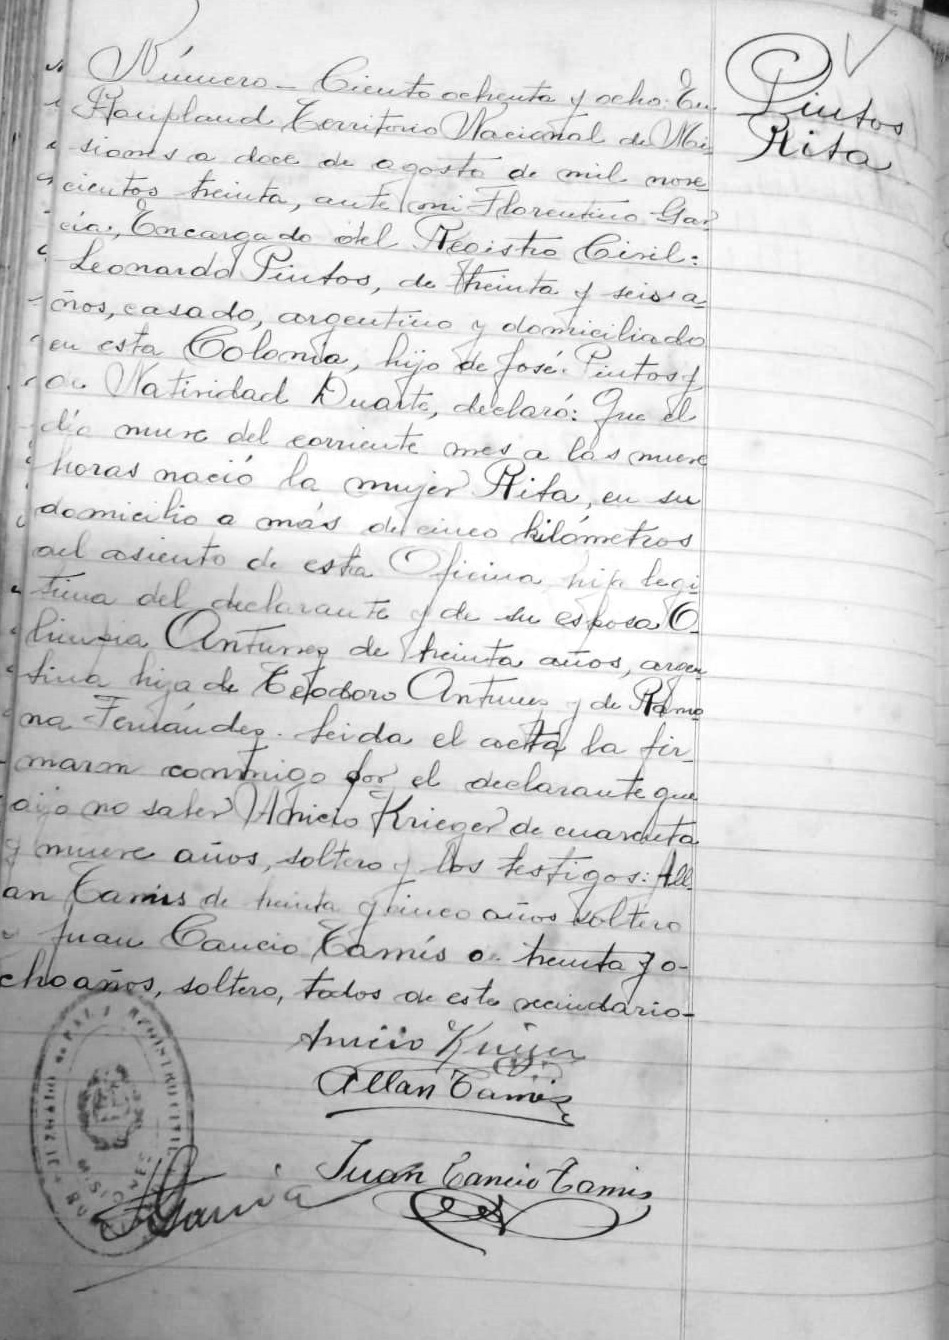 Pintos
Rita
Número - Ciento ochenta y ocho: En
Bonpland Territorio Nacional de Mi-
siones a doce de agosto de mil nove
cientos treinta, ante mi Florentino Gar
cía, Encargado del Registro Civil:
Leonardo Pintos, de treinta y seis a-
ños, casado, argentino y domiciliado
en esta Colonia, hijo de José Pintos y
de Natividad Duarte, declaró: Que el
día nueve del corriente mes a las nueve
horas nació la mujer Rita, en su
domicilio a más de cinco kilómetros
del asiento de esta Oficina hija legi
tima del declarante y de su esposa O-
limpia Antunez de treinta años, argen
tina hija de Teodoro Antunes y de Ramo
na Fernández. Leida el acta la fir-
maron conmigo por el declarante que
dijo no saber Aniceto Krieger de cuarenta
y nueve años, soltero y los testigos: All
an Tamis de treinta y cinco años soltero
y Juan Cancio Tamis de treinta y o-
cho años, soltero, todos de este vecindario-
Krieger
Allan Tamis
Juan Cancio Tamis
FGarcía
JUZGADO DE PAZ Y REGISTRO CIVIL